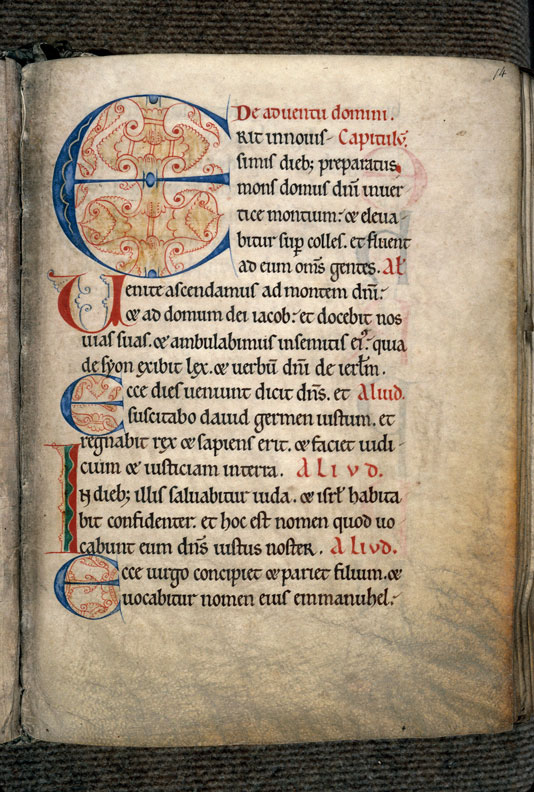 14
De adventu domini.
ERit innouis- Capitulū.
simis dieb; preparatus
mons domus dn̄i inver
tice montium: & eleva-
bitur sup̄ colles. et fluent
ad eum om̄s gentes. Al̄
Uenite ascendamus ad montem dn̄i:
& ad domum dei iacob: et docebit nos
vias suas. & ambulabimus insemitis ei9: quia
de syon exibit lex. & verbū dn̄i de ierl̄m.
Ecce dies veniunt dicit dn̄s. et Aliud.
suscitabo david germen iustum. et
regnabit rex & sapiens erit. & faciet iudi-
cium & iusticiam interra. Aliud.
IN dieb; illis salvabitur iuda. & isrl̄ habita
bit confidenter. et hoc est nomen quod vo
cabunt eum dn̄s iustus noster. Aliud.
Ecce virgo concipiet & pariet filium. &
vocabitur nomen eius emmanuhel: